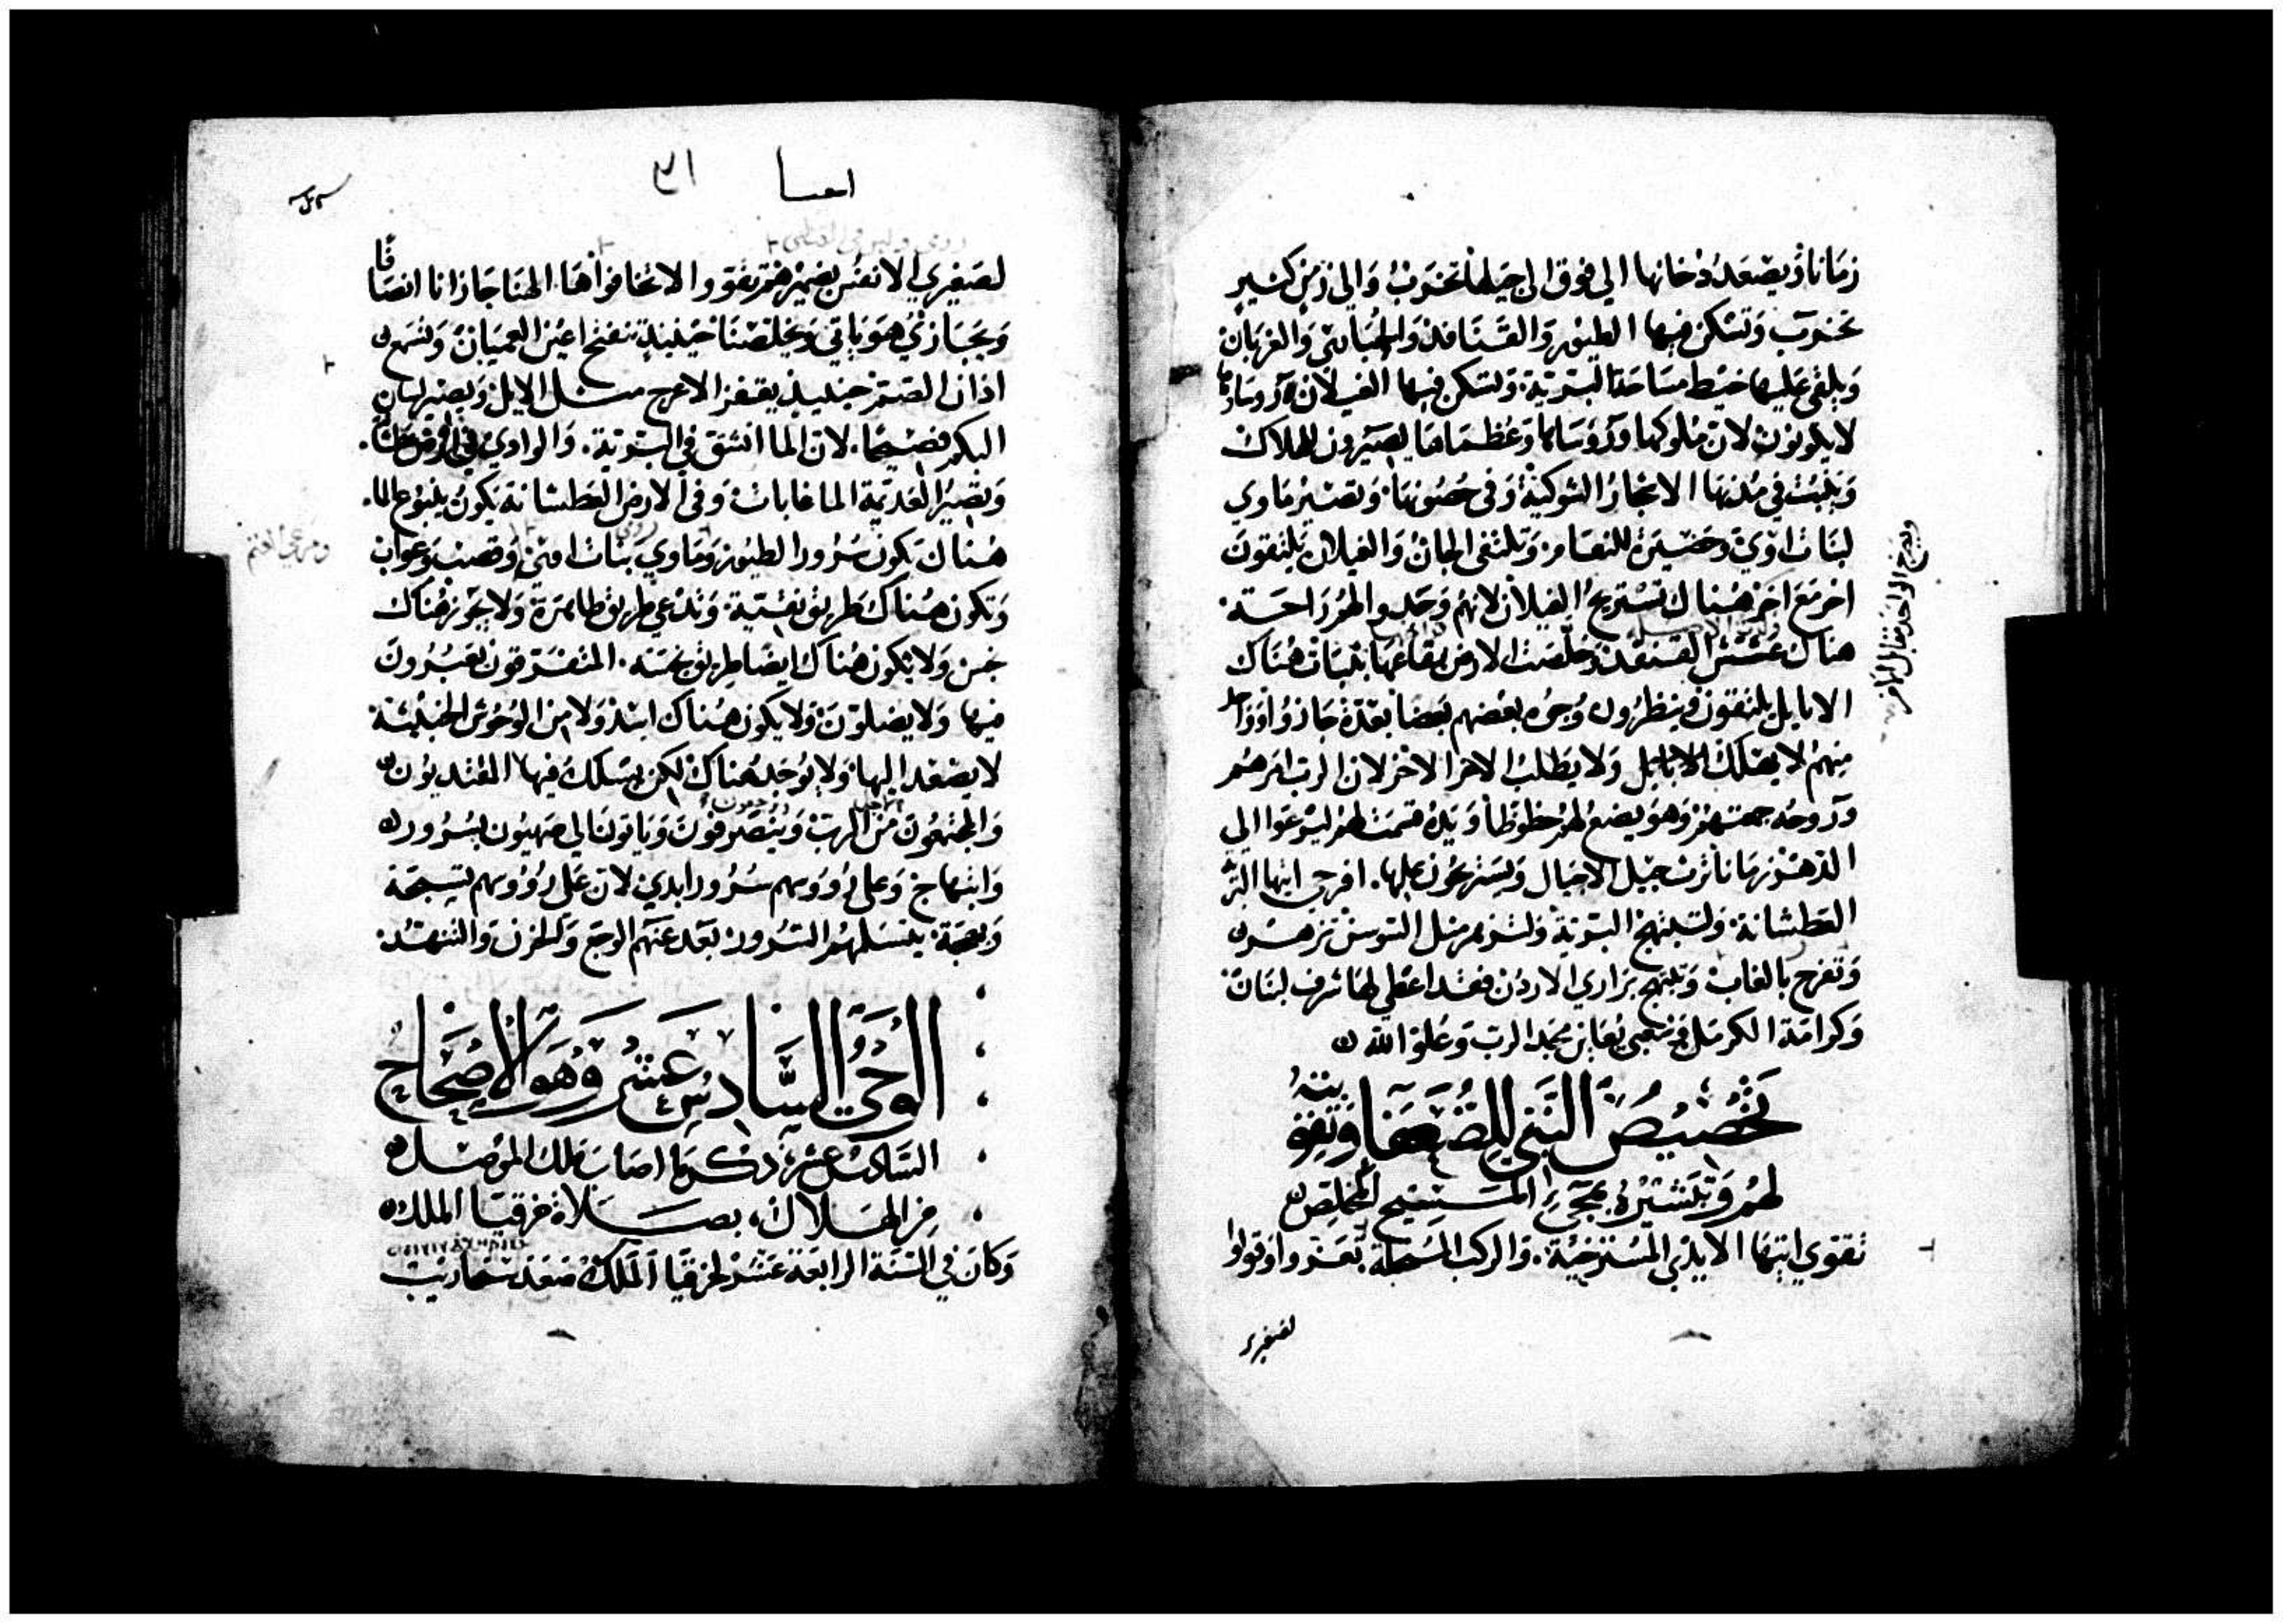 زمانا ويصعد دخانها الي فوق الي جيلها تخرب والي زمن كثير
تخرب وتسكن فيها الطيور والقنافد والغربان
ويلقي عليها خيط مساحة البرية وتسكن فيها الغيلان ورؤساوها
لا يكونون لان ملوكها ورؤساها وعظماها يصيرون للهلاك
وينبت في مدنها الاشجار الشوكية وفي حصونها وتصير ماوي
لبنات اوي وحضيرة للنعام وتلتقي الجان والغيلان يلتقون
اخر مع اخر هناك تستريح الغيلان لانهم وجدوا لهم راحة
هناك عشش القنفد وخلصت الارض بقاعها بثبات هناك
الايايل يلتقون وينظرون وجوه بعضهم بعضا بعدة جازوا وواحد
منهم لا يهلك ولا يطلب الاخر الاخر لان الرب امرهم
وروحه جمعتهم وهو يضع لهم حظوظا ويده قسمت لهم ليرعوا الي
الدهر زمانا ترث جيل الاجيال ويسترعون عليها. افرحي ايتها البرية
العطشانة ولتبتهج البرية ولتزهر مثل السوسن تزهر
وتفرح بالغاب وتبتهج براري الاردن فقد اعطي لها شرف لبنان
وكرامة الكرمل وشعبي يعاين مجد الرب وعلو الله
تخصيص النبي للضعفا وتقويته
لهم وتبشيره بمجيء المسيح المخلص
تقوي ايتها الايدي المسترخية والركب المنحلة تعزوا وقولوا
لصغيري
ويج الواحد مقابل الاخر
اشعيا
٣١
لصغيري الانفس بضميرهم تقووا لا تخافوا ها الهنا جازانا انصافا
ويجازي هو ياتي ويخلصنا حينيذ تنفتح اعين العميان وتسمع
اذان الصم حينيذ يقفز الاعرج مثل الايل ويصير لسان
البكم فصيحا. لان الما انشق في البرية. والوادي في ارض عطشانة.
وتصير العديمة الما غابات وفي الارض العطشانة يكون ينبوع الما.
هناك يكون سرور الطيور وماوي بنات اوي وقصب وغواب
وتكون هناك طريق نقية وتدعي طريق طاهرة ولا يجوز هناك
نجس ولا يكون هناك ايضا طريق نجسة. المتفرقون يعبرون
فيها ولا يضلون ولا يكون هناك اسد ولا من الوحوش الخبيثة
لا يصعد اليها ولا يوجد هناك لكن يسلك فيها المفتديون
والمجتمعون من الرب وينصرفون وياتون الي صهيون بسرور
وابتهاج وعلي رووسهم سرور ابدي لان علي رووسهم تسبحة
وبهجة. يتسلمهم السرور. بعد عنهم الوجع والحزن والتنهد.
ومرعي الغنم
الوحي السادس عشر وهو الاصحاح
السادس عشر، ذكر ما اصاب ملك الموصل
من الهلاك، بصلاة حزقيا الملك
وكان في السنة الرابعة عشر لحزقيا الملك صعد سنحاريب